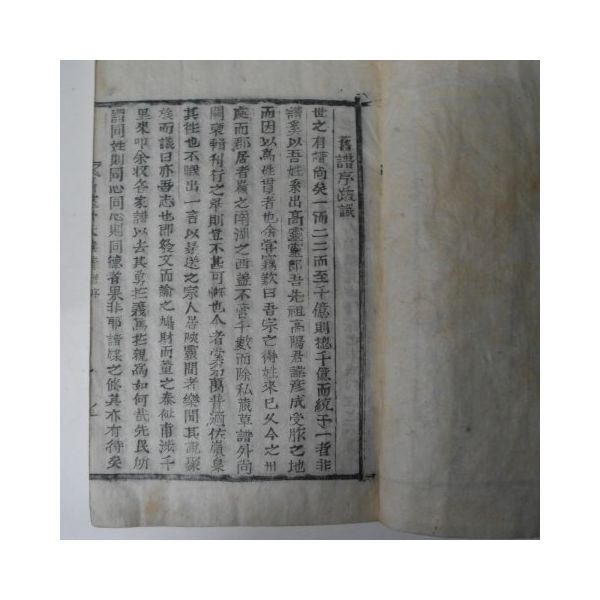 舊譜序改識
世之有譜尚矣一而二二而至千億則摠千億而統于一者非
譜奚以吾姓系出高靈靈郎吾先祖高陽君諱彦成受脤之地
而因以爲姓貫者也余常竊歎曰吾宗亡得姓來已久今之州
處而郡居者嶺之南湖之西盖不啻千數而除私藏草譜外尚
闕裒輯刊行之擧則豈不甚可慨也今者堂 萬 甫 佐嶺臬
其徃也不暇出一言以 送之宗人居陜靈間者樂聞其 聚
族而議曰亦吾志也即發文而諭之鳩財而董之泰祉甫涉千
里來叩余收各家譜以去其勇於義篤於親爲如何哉先民所
謂同姓則同心同心則同德者果非耶譜牒之修其亦有待矣